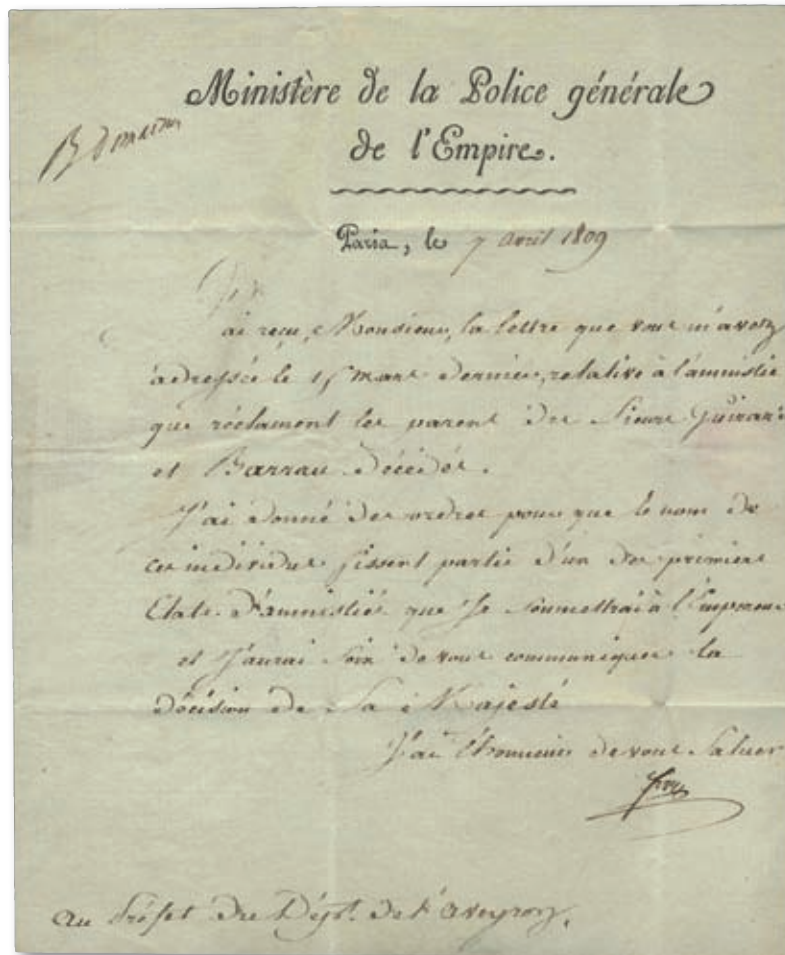 Ministère de la Police générale
de l'Empire.
Paris, le 7 avril 1809
J'ai reçu, Monsieur, la lettre que vous m'avez
adressée le 15 mars dernier, relative à l'amnistie
que réclament les parens des Sieurs
et Barrau décédés.
J'ai donné des ordres pour que le nom de
ces individus fissent partie d'un des premiers
Etats d'amnistiés que Je soumettrai à l'Empereur
et J'aurai soin de vous communiquer la
décision de Sa Majesté
J'ai l'honneur de vous Saluer
Au Préfet du Dépt. de l'aveyron.